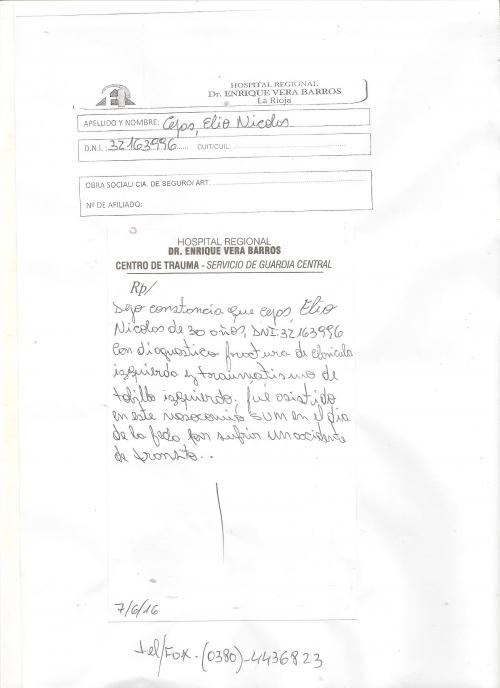 HOSPITAL REGIONAL
Dr. ENRIQUE VERA BARROS
La Rioja
APELLIDO Y NOMBRE: Cejas, Elio Nicolas
D.N.I.: 32163996 CUIT/CUIL:
OBRA SOCIAL/ CIA. DE SEGURO/ ART:
Nº DE AFILIADO:
HOSPITAL REGIONAL
DR. ENRIQUE VERA BARROS
CENTRO DE TRAUMA - SERVICIO DE GUARDIA CENTRAL
Rp/
Dejo constancia que Cejas, Elio
Nicolas de 30 años, DNI: 32163996
con diagnostico fractura de clavicula
izquierda y traumatismo de
tobillo izquierdo. fue asistido
en este nosocomio en el dia
de la fecha por sufrir un accidente
de transito..
7/6/16
tel/Fax. (0380)-4436823